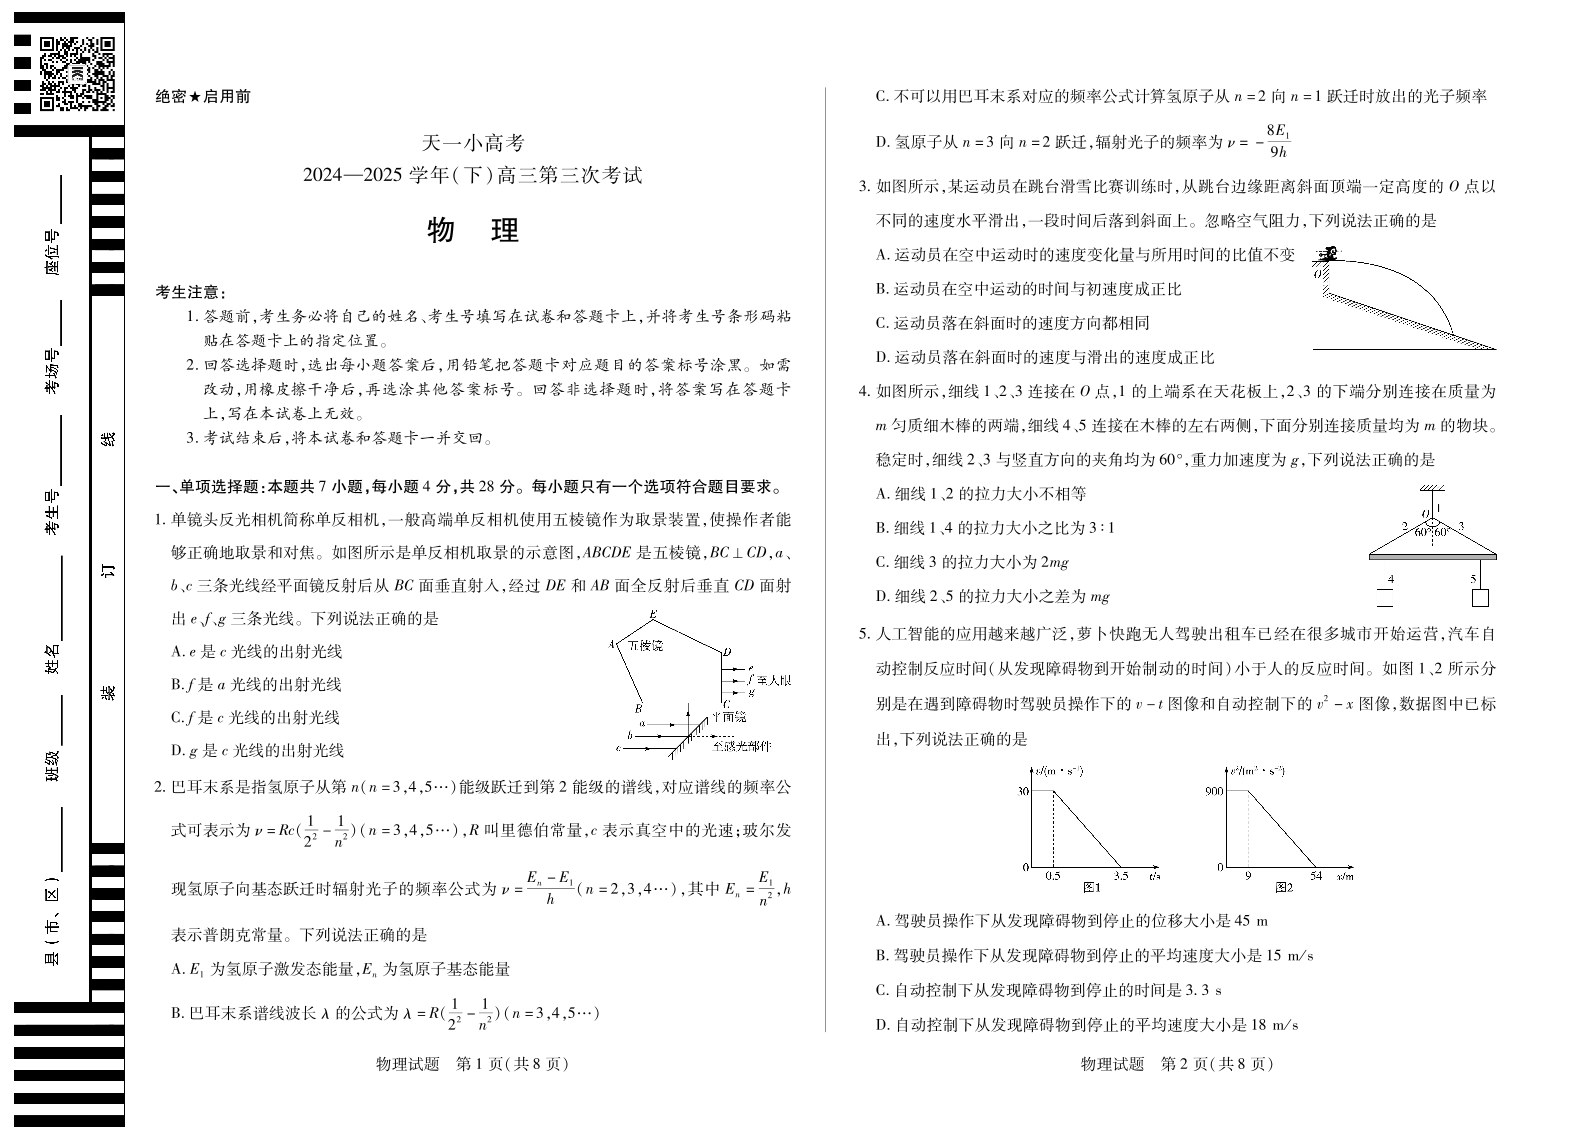 绝密★启用前
天一小高考
2024—2025 学年(下)高三第三次考试
物 理
考生注意:
1. 答题前,考生务必将自己的姓名、考生号填写在试卷和答题卡上,并将考生号条形码粘
贴在答题卡上的指定位置。
2. 回答选择题时,选出每小题答案后,用铅笔把答题卡对应题目的答案标号涂黑。如需
改动,用橡皮擦干净后,再选涂其他答案标号。回答非选择题时,将答案写在答题卡
上,写在本试卷上无效。
3. 考试结束后,将本试卷和答题卡一并交回。
一、单项选择题:本题共 7 小题,每小题 4 分,共 28 分。每小题只有一个选项符合题目要求。
1. 单镜头反光相机简称单反相机,一般高端单反相机使用五棱镜作为取景装置,使操作者能
够正确地取景和对焦。如图所示是单反相机取景的示意图,ABCDE 是五棱镜,BC⊥CD,a、
b、c 三条光线经平面镜反射后从 BC 面垂直射入,经过 DE 和 AB 面全反射后垂直 CD 面射
出 e、f、g 三条光线。下列说法正确的是
A. e 是 c 光线的出射光线
B. f 是 a 光线的出射光线
C. f 是 c 光线的出射光线
D. g 是 c 光线的出射光线
E
A 五棱镜
D
e
f 至人眼
g
B
C
平面镜
a
b
c
至感光部件
2. 巴耳末系是指氢原子从第 n(n=3,4,5…)能级跃迁到第 2 能级的谱线,对应谱线的频率公
式可表示为 ν=Rc(1/2² − 1/n²)(n=3,4,5…),R 叫里德伯常量,c 表示真空中的光速;玻尔发
现氢原子向基态跃迁时辐射光子的频率公式为 ν=(Eₙ−E₁)/h(n=2,3,4…),其中 Eₙ=E₁/n²,h
表示普朗克常量。下列说法正确的是
A. E₁ 为氢原子激发态能量,Eₙ 为氢原子基态能量
B. 巴耳末系谱线波长 λ 的公式为 λ=R(1/2² − 1/n²)(n=3,4,5…)
物理试题 第 1 页(共 8 页)
C. 不可以用巴耳末系对应的频率公式计算氢原子从 n=2 向 n=1 跃迁时放出的光子频率
D. 氢原子从 n=3 向 n=2 跃迁,辐射光子的频率为 ν=−8E₁/9h
3. 如图所示,某运动员在跳台滑雪比赛训练时,从跳台边缘距离斜面顶端一定高度的 O 点以
不同的速度水平滑出,一段时间后落到斜面上。忽略空气阻力,下列说法正确的是
A. 运动员在空中运动时的速度变化量与所用时间的比值不变
B. 运动员在空中运动的时间与初速度成正比
C. 运动员落在斜面时的速度方向都相同
D. 运动员落在斜面时的速度与滑出的速度成正比
O
4. 如图所示,细线 1、2、3 连接在 O 点,1 的上端系在天花板上,2、3 的下端分别连接在质量为
m 匀质细木棒的两端,细线 4、5 连接在木棒的左右两侧,下面分别连接质量均为 m 的物块。
稳定时,细线 2、3 与竖直方向的夹角均为 60°,重力加速度为 g,下列说法正确的是
A. 细线 1、2 的拉力大小不相等
B. 细线 1、4 的拉力大小之比为 3∶1
C. 细线 3 的拉力大小为 2mg
D. 细线 2、5 的拉力大小之差为 mg
O 1
2 60° 60° 3
4 5
5. 人工智能的应用越来越广泛,萝卜快跑无人驾驶出租车已经在很多城市开始运营,汽车自
动控制反应时间(从发现障碍物到开始制动的时间)小于人的反应时间。如图 1、2 所示分
别是在遇到障碍物时驾驶员操作下的 v−t 图像和自动控制下的 v²−x 图像,数据图中已标
出,下列说法正确的是
v/(m·s⁻¹)
30
0 0.5 3.5 t/s
图1
v²/(m²·s⁻²)
900
0 9 54 x/m
图2
A. 驾驶员操作下从发现障碍物到停止的位移大小是 45 m
B. 驾驶员操作下从发现障碍物到停止的平均速度大小是 15 m/s
C. 自动控制下从发现障碍物到停止的时间是 3.3 s
D. 自动控制下从发现障碍物到停止的平均速度大小是 18 m/s
物理试题 第 2 页(共 8 页)
座位号
考场号
考生号
姓名
班级
县(市、区)
线
订
装